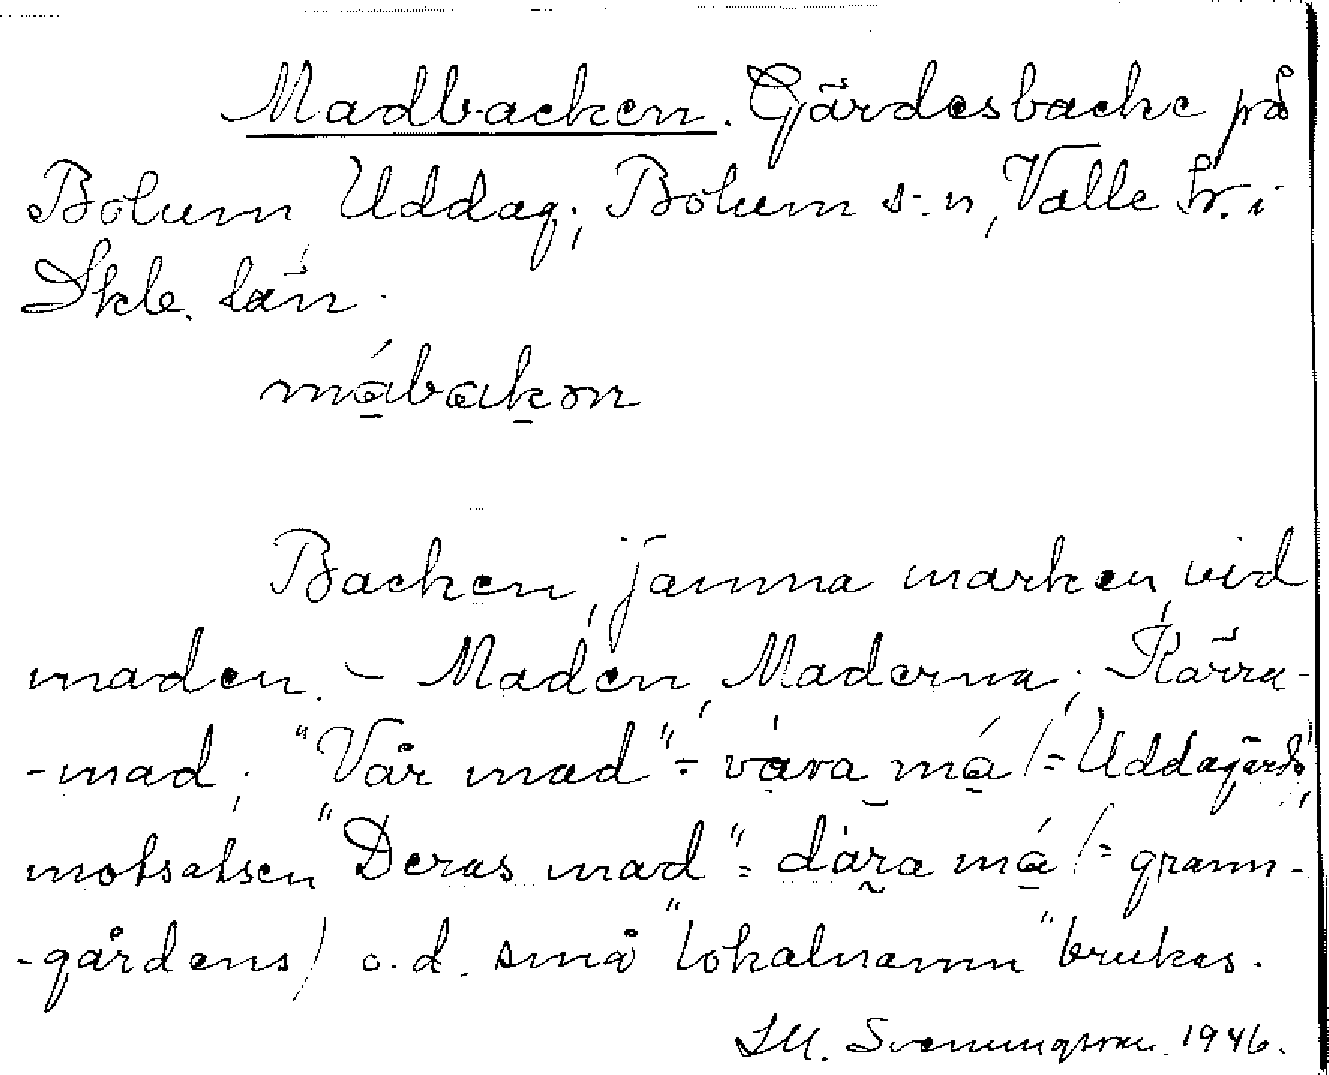 Madbacken. Gärdesbacke på
Bolum, Uddag.; Bolum s-n, Valle hr. i
Skb. län.
má̱baḵən
Backen, jämna marken, vid
maden. - Maden, Maderna; Kärra-
-mad; "Vår mad" = våra má̱ (= Uddagårds,
motsatsen "Deras mad" = dära má̱ (= grann-
-gårdens) o.d. små "lokalnamn" brukas.
Svenningsson 1946.